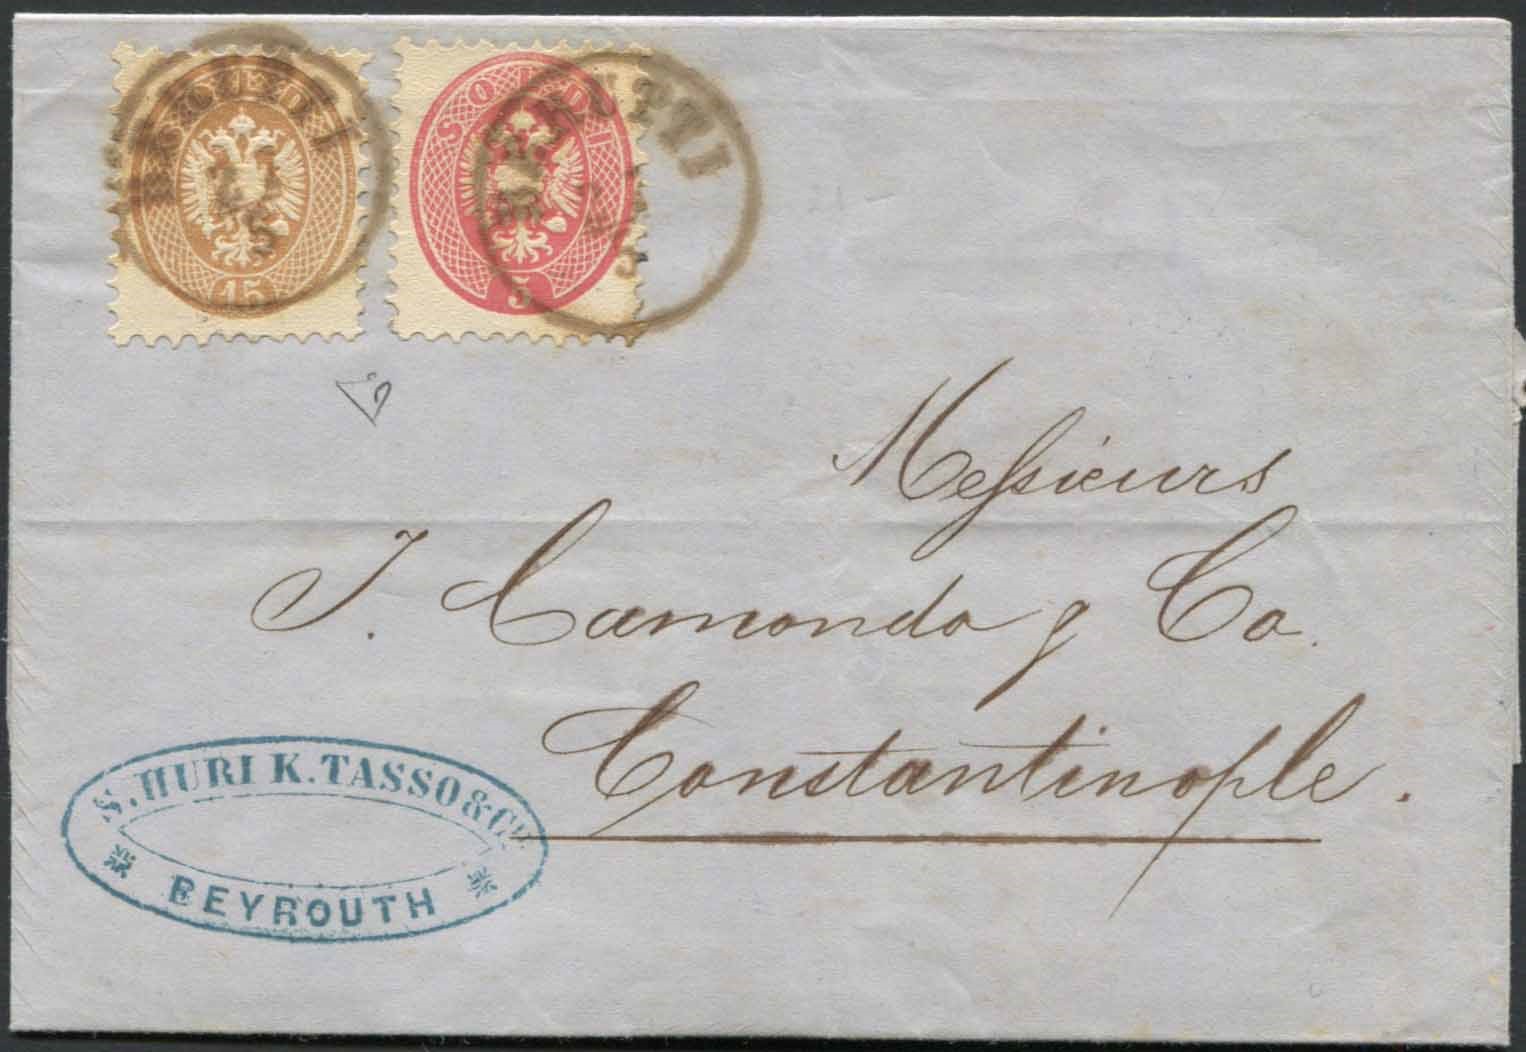 SOLDI
15
SOLDI
5
Messieurs
J. Camondo & Co.
Constantinople.
S. HURI K. TASSO & Co
BEYROUTH